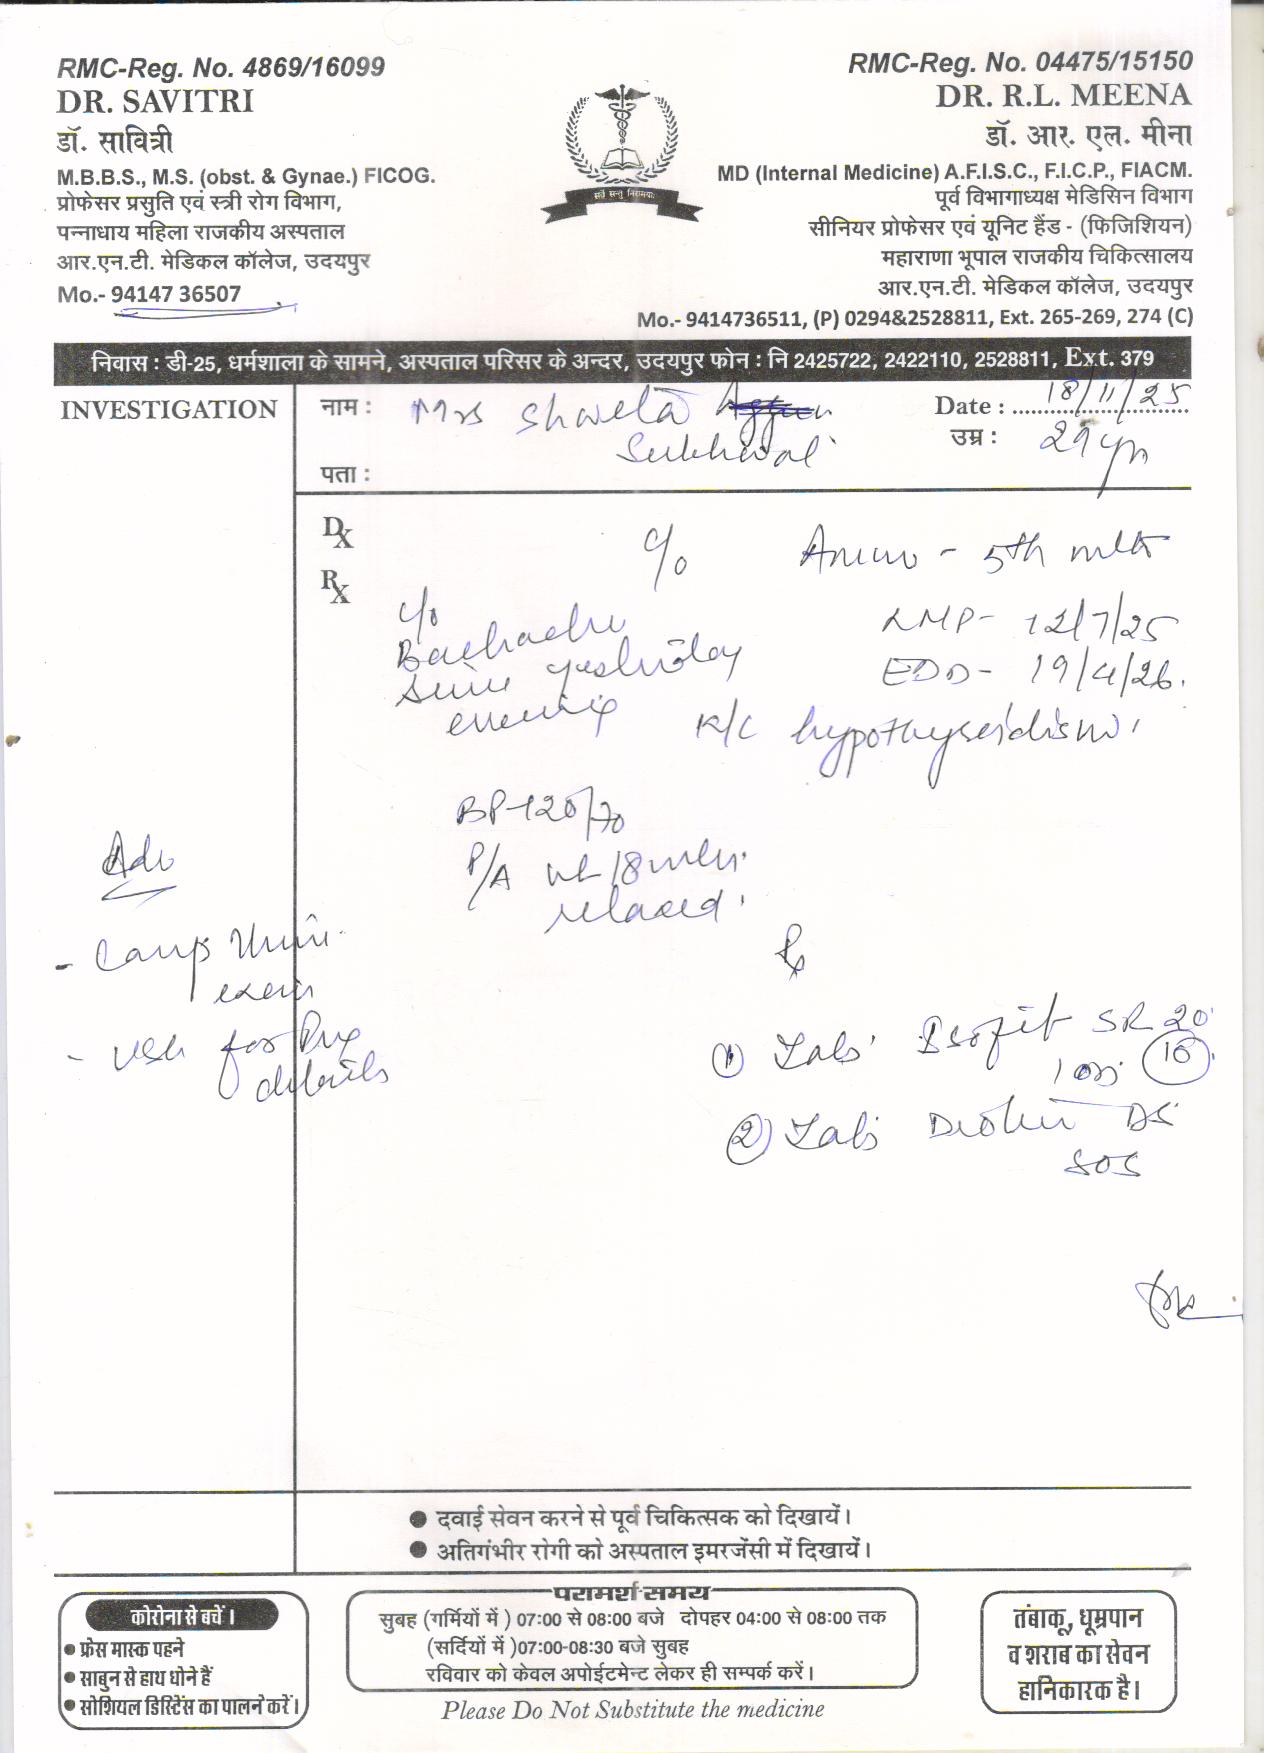 RMC-Reg. No. 4869/16099
DR. SAVITRI
डॉ. सावित्री
M.B.B.S., M.S. (obst. & Gynae.) FICOG.
प्रोफेसर प्रसुति एवं स्त्री रोग विभाग,
पन्नाधाय महिला राजकीय अस्पताल
आर.एन.टी. मेडिकल कॉलेज, उदयपुर
Mo.- 94147 36507
सर्वे सन्तु निरामयाः
RMC-Reg. No. 04475/15150
DR. R.L. MEENA
डॉ. आर. एल. मीना
MD (Internal Medicine) A.F.I.S.C., F.I.C.P., FIACM.
पूर्व विभागाध्यक्ष मेडिसिन विभाग
सीनियर प्रोफेसर एवं यूनिट हैंड - (फिजिशियन)
महाराणा भूपाल राजकीय चिकित्सालय
आर.एन.टी. मेडिकल कॉलेज, उदयपुर
Mo.- 9414736511, (P) 0294&2528811, Ext. 265-269, 274 (C)
निवास : डी-25, धर्मशाला के सामने, अस्पताल परिसर के अन्दर, उदयपुर फोन : नि 2425722, 2422110, 2528811, Ext. 379
INVESTIGATION
नाम : Mrs Shweta
Sukhwal
Date : 18/11/25
उम्र : 29 yrs
पता :
Dx
Rx
c/o - 5th mth
c/o
Backache
since yesterday
evening
LMP- 12/7/25
EDD- 19/4/26.
K/C hypothyroidism
BP-120/70
P/A ut 18 wks.
relaxed.
Adv
- exam
- USG for
details
Rx
1) Tab. SR 20
1 OD. (10)
2) Tab. DS
SOS
● दवाई सेवन करने से पूर्व चिकित्सक को दिखायें।
● अतिगंभीर रोगी को अस्पताल इमरजेंसी में दिखायें।
कोरोना से बचें।
● फ्रेस मास्क पहने
● साबुन से हाथ धोने हैं
● सोशियल डिस्टिेंस का पालन करें।
परामर्श समय
सुबह (गर्मियों में ) 07:00 से 08:00 बजे दोपहर 04:00 से 08:00 तक
(सर्दियों में )07:00-08:30 बजे सुबह
रविवार को केवल अपोईटमेन्ट लेकर ही सम्पर्क करें।
Please Do Not Substitute the medicine
तंबाकू, धूम्रपान
व शराब का सेवन
हानिकारक है।